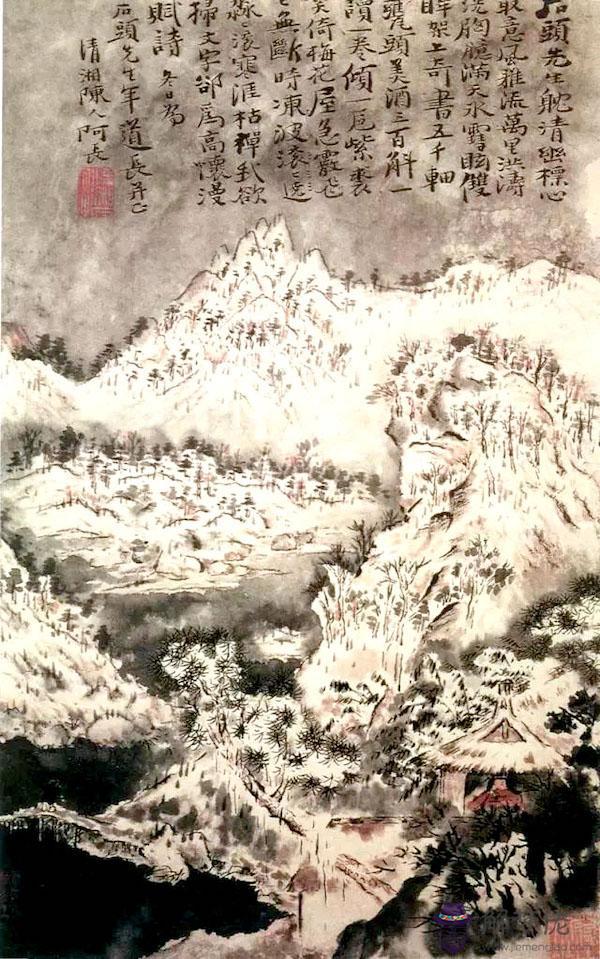 石頭先生耽清幽標心
取意風雅流萬里洪濤
洗胸臆滿天冰雪眩雙
眸架上奇書五千軸
甕頭美酒三百斛一
讀一卷傾一卮紫裘
笑倚梅花屋急霰飛
無斷時凍波滾
寒涯枯禪我欲
掃文字卻為高懷漫
賦詩 冬日為
石頭先生年道長并正
清湘陳人阿長